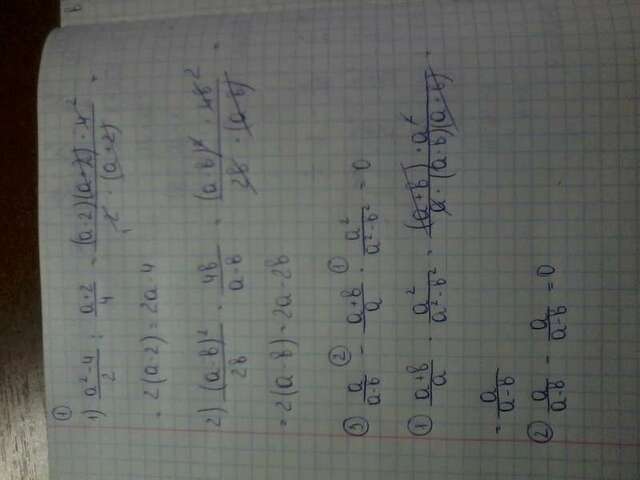 ①
1) (a²-4)/2 : (a+2)/4 = ((a-2)(a+2)·4²)/(2·(a+2)) =
= 2(a-2) = 2a-4
2) (a-b)²/2b · 4b/(a-b) = ((a-b)²·4b²)/(2b·(a-b)) =
= 2(a-b) = 2a-2b
③ a/(a-b) -② (a+b)/a ·① a²/(a²-b²) = 0
① (a+b)/a · a²/(a²-b²) = ((a+b)·a²)/(a·(a-b)(a+b)) =
= a/(a-b)
② a/(a-b) - a/(a-b) = 0